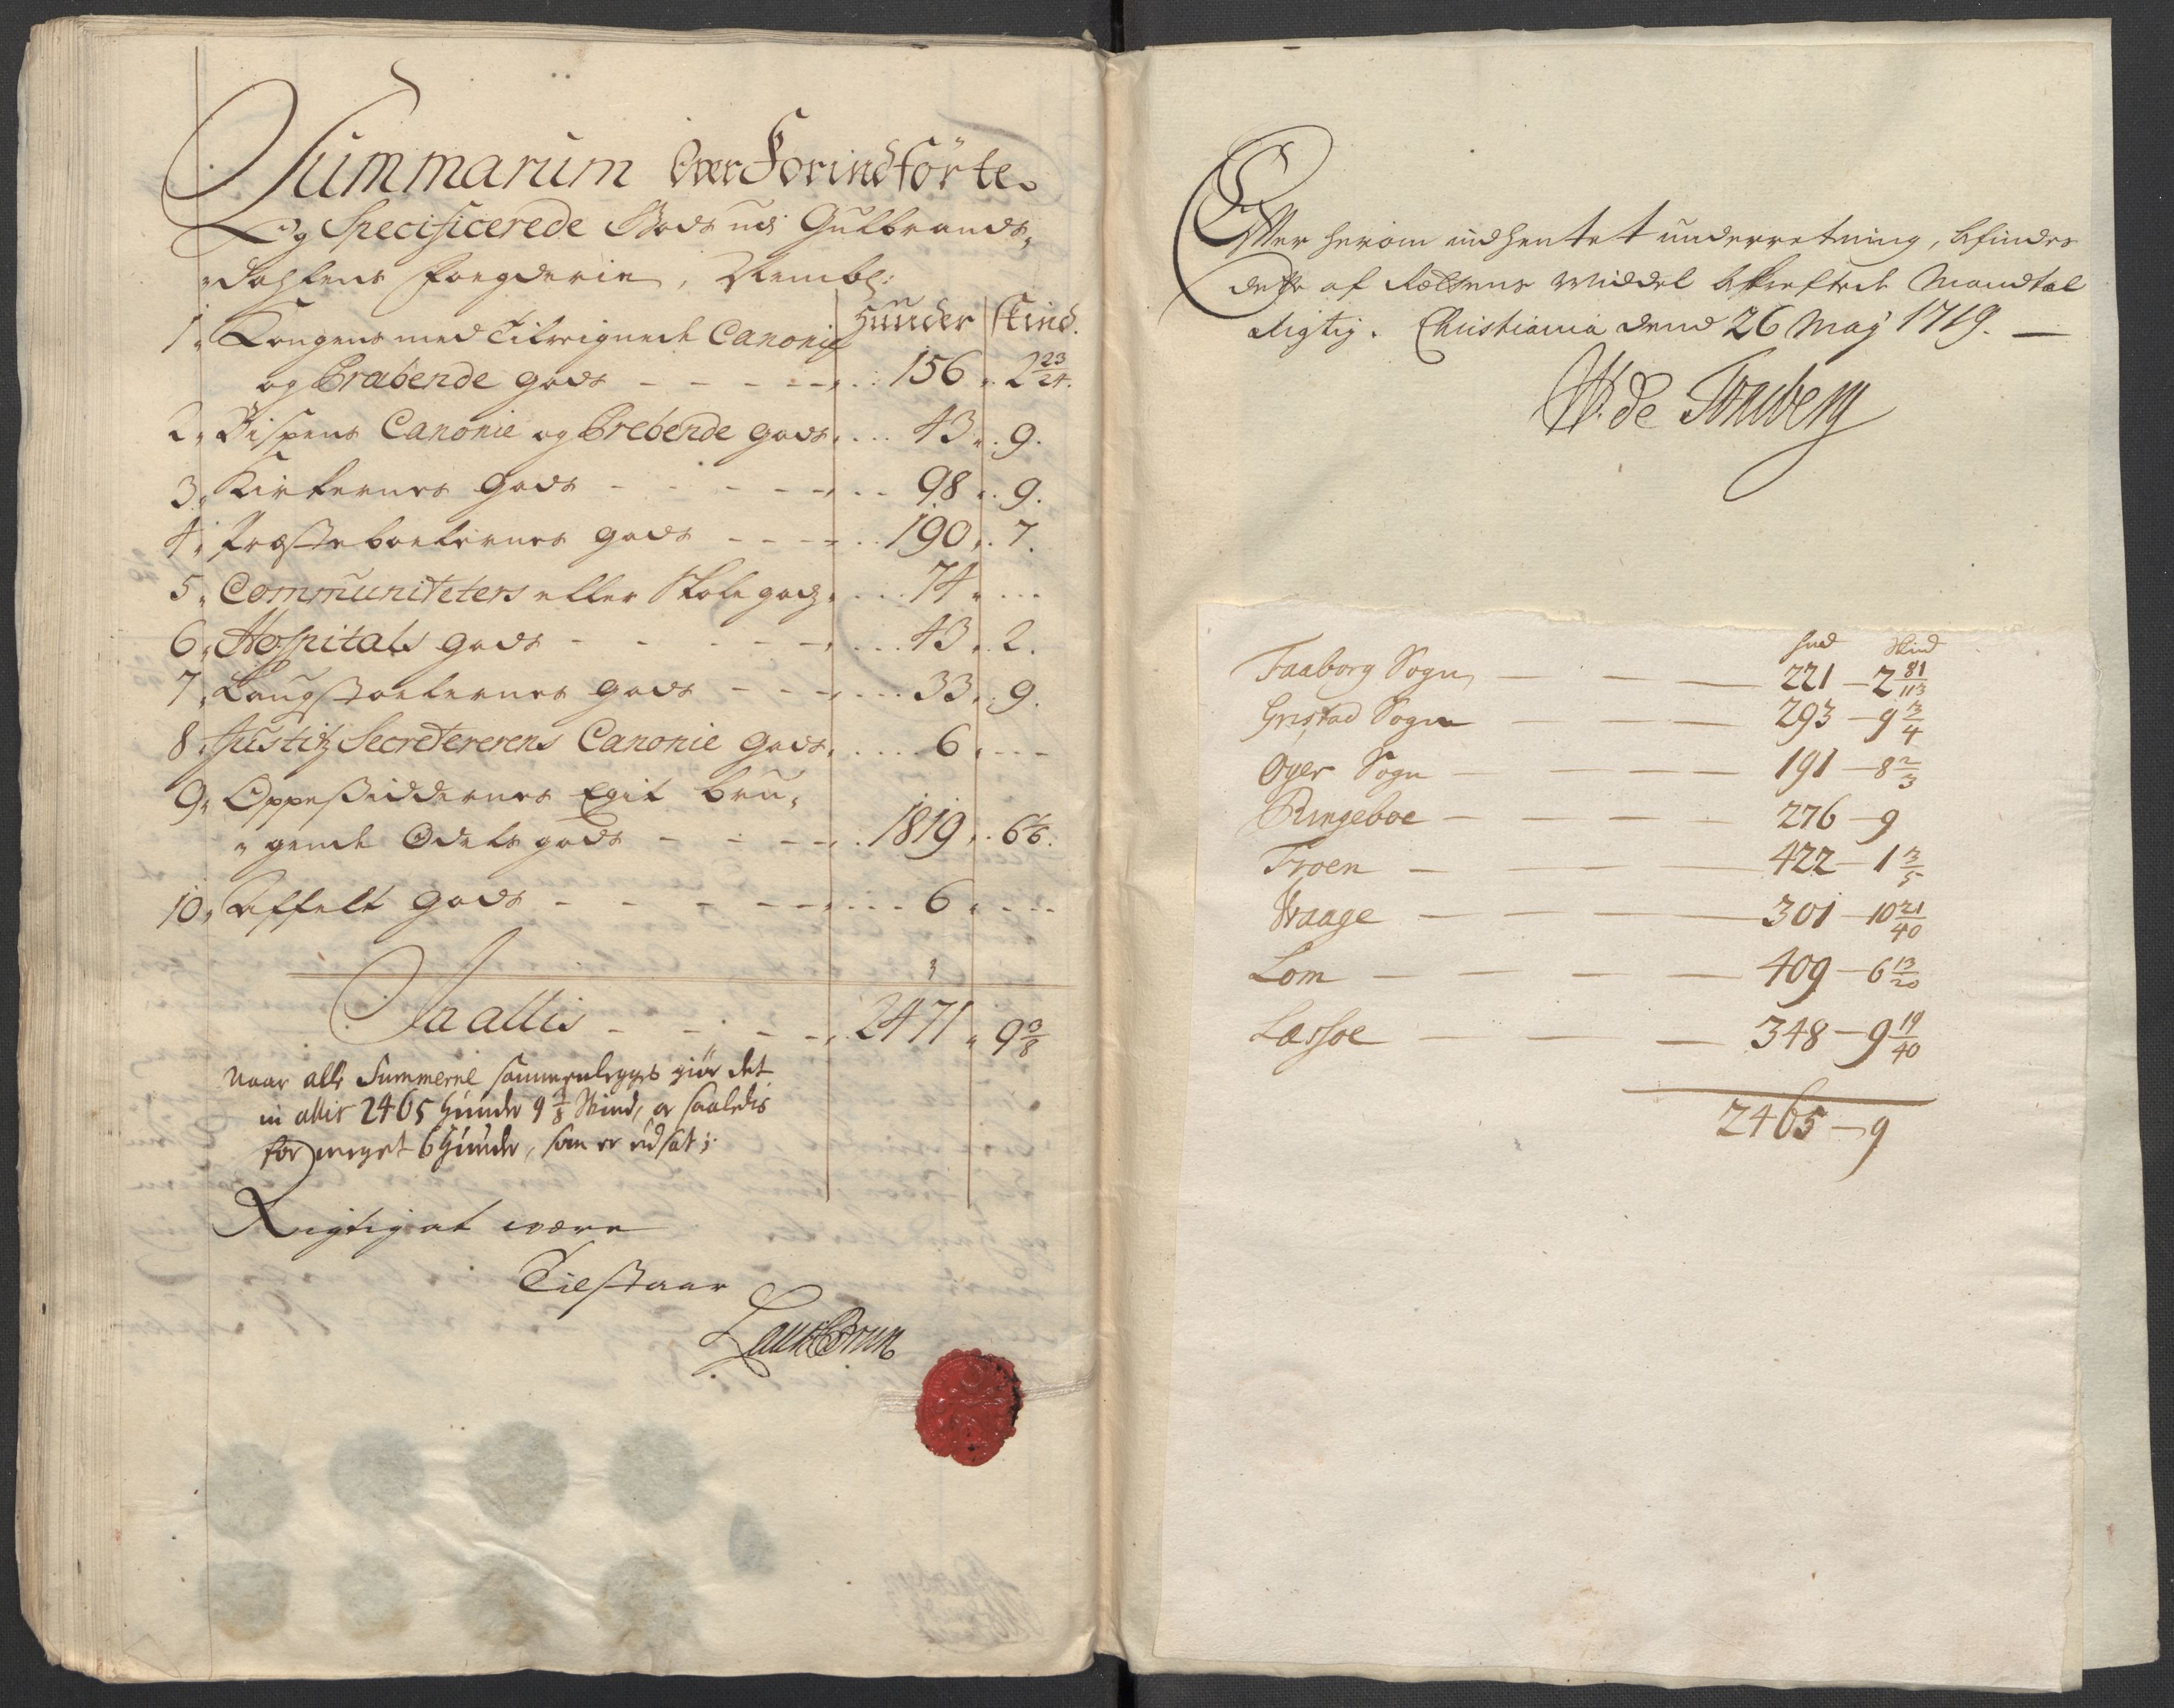 Summarum Over Forindførte
Og Specificerede Gods udi Gulbrands-
dahlens fogderie, Nembl:
Hunder Skind.
1. Kongens med Tilweignede Canonie
og Præbende gods - - - - 156 .. 2 23/24.
2. Bispens Canonie og Prebende gods .... 43 .. 9.
3. Kirkernes Gods - - - - - 98 .. 9.
4. Præsteboelernes gods - - - - 190 .. 7.
5. Communiteters eller Skole gods .... 74 ...
6. Hospitals gods - - - - - 43 .. 2.
7. Laugstoelernes gods - - - - 33 .. 9.
8. Justitz Secreterens Canonie gods .... 6 ...
9. Oppesiddernes Egit bru-
gende Odels gods - - - - 1819 .. 6
10. Affelt gods - - - - - 6 ...
In allis - - - - 2471 .. 9 3/8
Naar alle Summerne sammenlegges giør det
in allis 2465 Hunder 9 3/8 Skind, er saaledis
for meget 6 Hunder, som er udsat ;
Rigtig at være
Tilstaar
Laur Brun
Efter herom indhentet underretning, befindes
dette af Rættens Middel bekreftede Mandtal
Rigtig. Christiania dend 26 Maÿ 1719. —
W. de Tonsberg
Hud Skind
Faaborg Sogn — — — 221 — 2 81/113
Gusdad Sogn — — — 293 — 9 3/4
Øyer Sogn — — — 191 — 8 2/3
Ringeboe — — — 276 — 9
Froen — — — 422 — 1 3/5
Waage — — — 301 — 10 21/40
Lom — — — 409 — 6 13/20
Læssoe — — — 348 — 9 19/40
2465 — 9